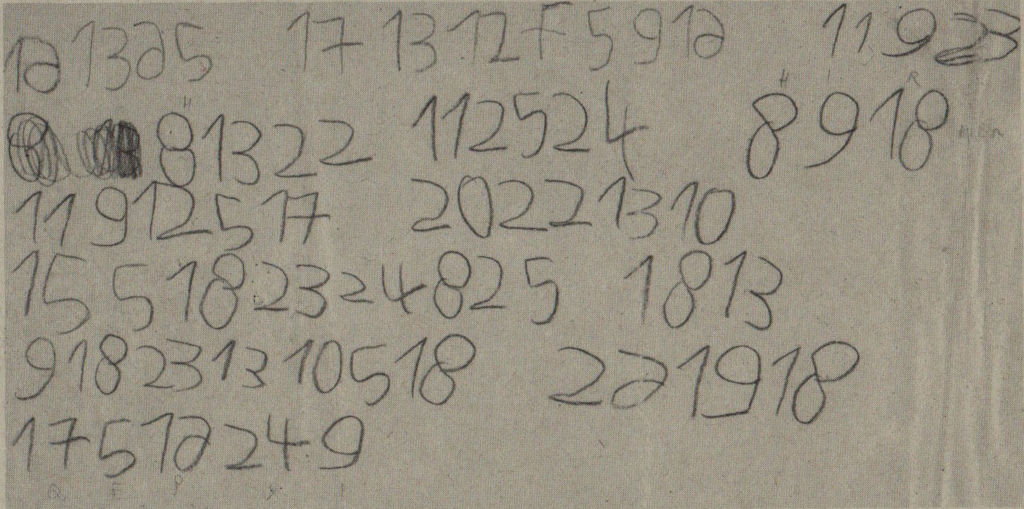 121325 17131275912 11923
H I R
H
81322 112524 8918
11912517 20221310
155182324825 1813
918231310518 221918
17512249